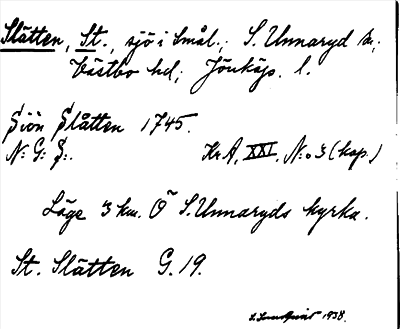 Slätten, St., sjö i Smål.; S. Unnaryd sn;
Västbo hd; Jönköp. l.
Siön Slåtten 1745.
N: G: S:.
Kr A, XXI, N:o 3 (kop.)
Läge 3 km. Ö S. Unnaryds kyrka.
St. Slätten G. 19.
1938.